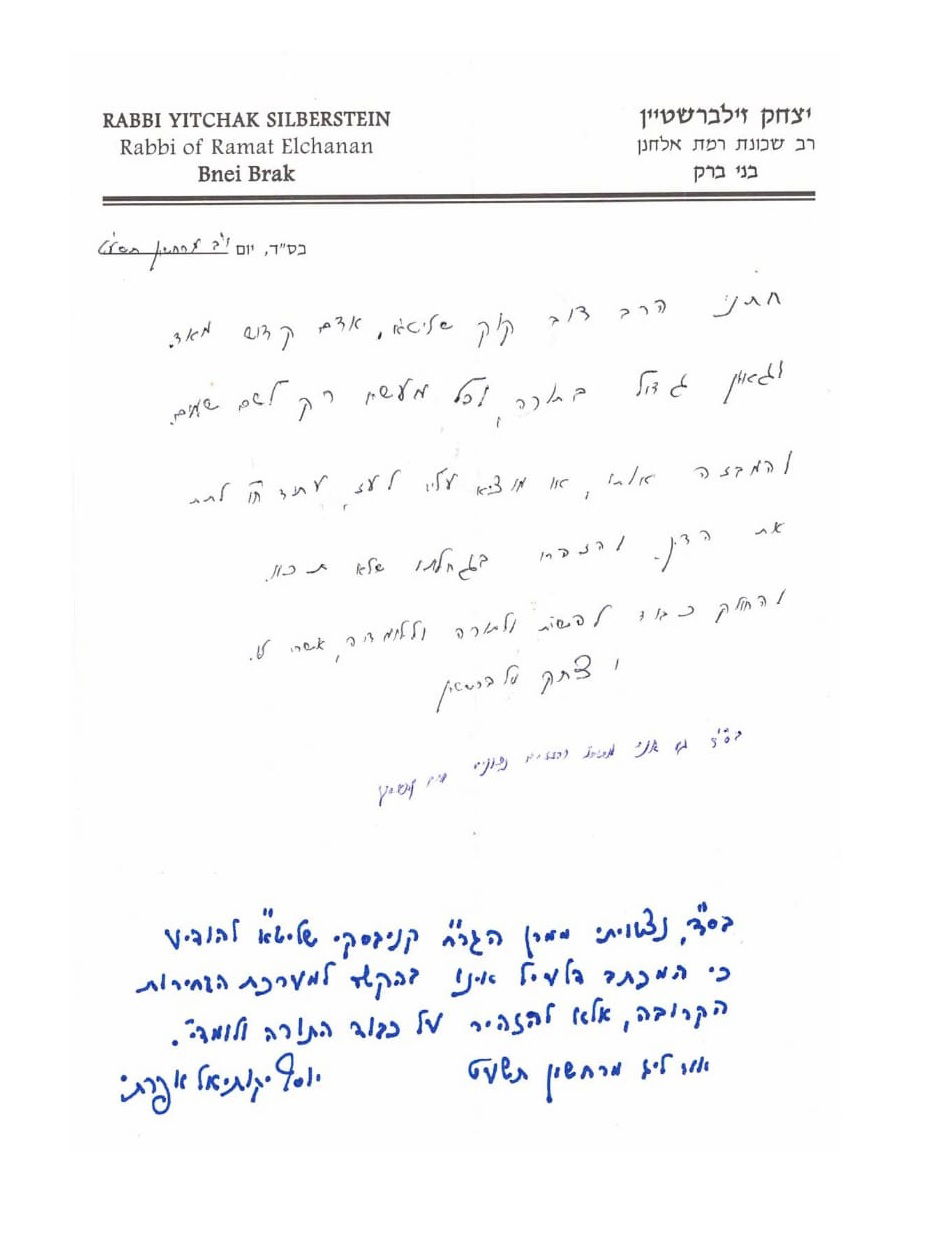 RABBI YITCHAK SILBERSTEIN
Rabbi of Ramat Elchanan
Bnei Brak
יצחק זילברשטיין
רב שכונת רמת אלחנן
בני ברק
בס"ד, יום י"ב מרחשון תשע"ט
חתני הרב דוב קוק שליט"א, אדם קדוש מאד.
וגאון גדול בתורה, וכל מעשיו רק לשם שמים.
והמבזה אותו, או מוציא עליו לעז, עתיד ח"ו לתת
את הדין. והזהרו בגחלתו שלא תכוו.
והחולק כבוד להשי"ת ולתורה וללומדיה, אשרי לו.
יצחק זילברשטיין
בס"ד גם אני
בס"ד, נצטויתי ממרן הגר"ח קניבסקי שליט"א להודיע
כי המכתב דלעיל אינו בהקשר למערכת הבחירות
הקרובה, אלא להזהיר על כבוד התורה ולומדי'.
אור לי"ג מרחשון תשע"ט
יוסף יקותיאל אפרתי